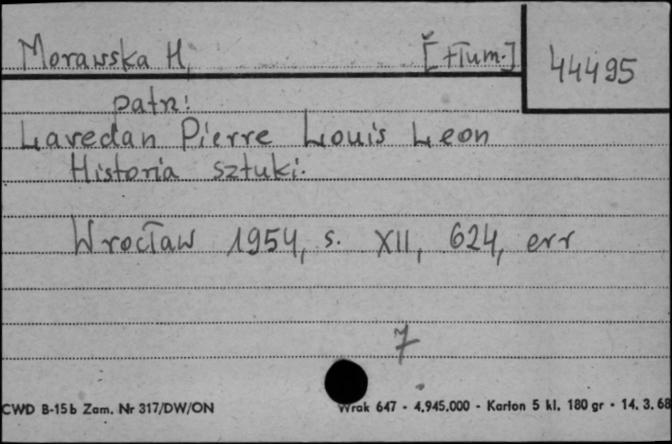 Morawska H. [tłum.]
44495
patrz:
Lavedan Pierre Louis Leon
Historia sztuki.
Wrocław 1954, s. XII, 624, err
7
CWD B-15b Zam. Nr 317/DW/ON
Wrak 647 - 4.945.000 - Karton 5 kl. 180 gr - 14. 3. 68